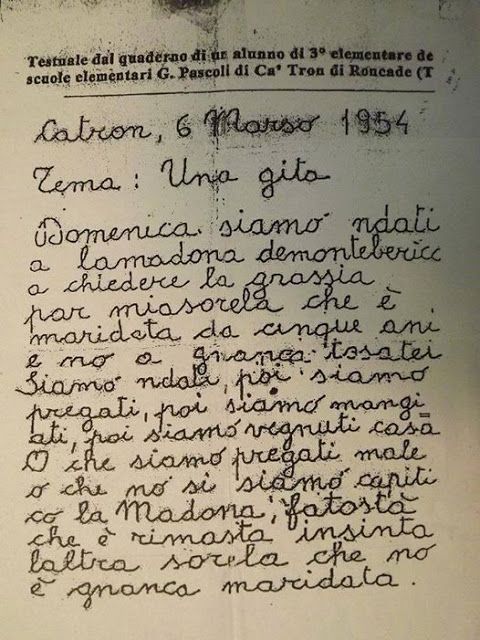 Testuale dal quaderno di un alunno di 3° elementare de
scuole elementari G. Pascoli di Ca' Tron di Roncade (T
Catron, 6 Marso 1954
Tema : Una gita
Domenica siamo ndati
a lamadona demonteberico
a chiedere la grassia
par miasorela che è
maridata da cinque ani
e no a gnanca tosatei
Siamo ndati, poi siamo
pregati, poi siamo mangi
ati, poi siamo vegnuti casa
O che siamo pregati male
o che no si siamo capiti
co la Madona, fatostà
che è rimasta insinta
laltra sorela che no
è gnanca maridata.